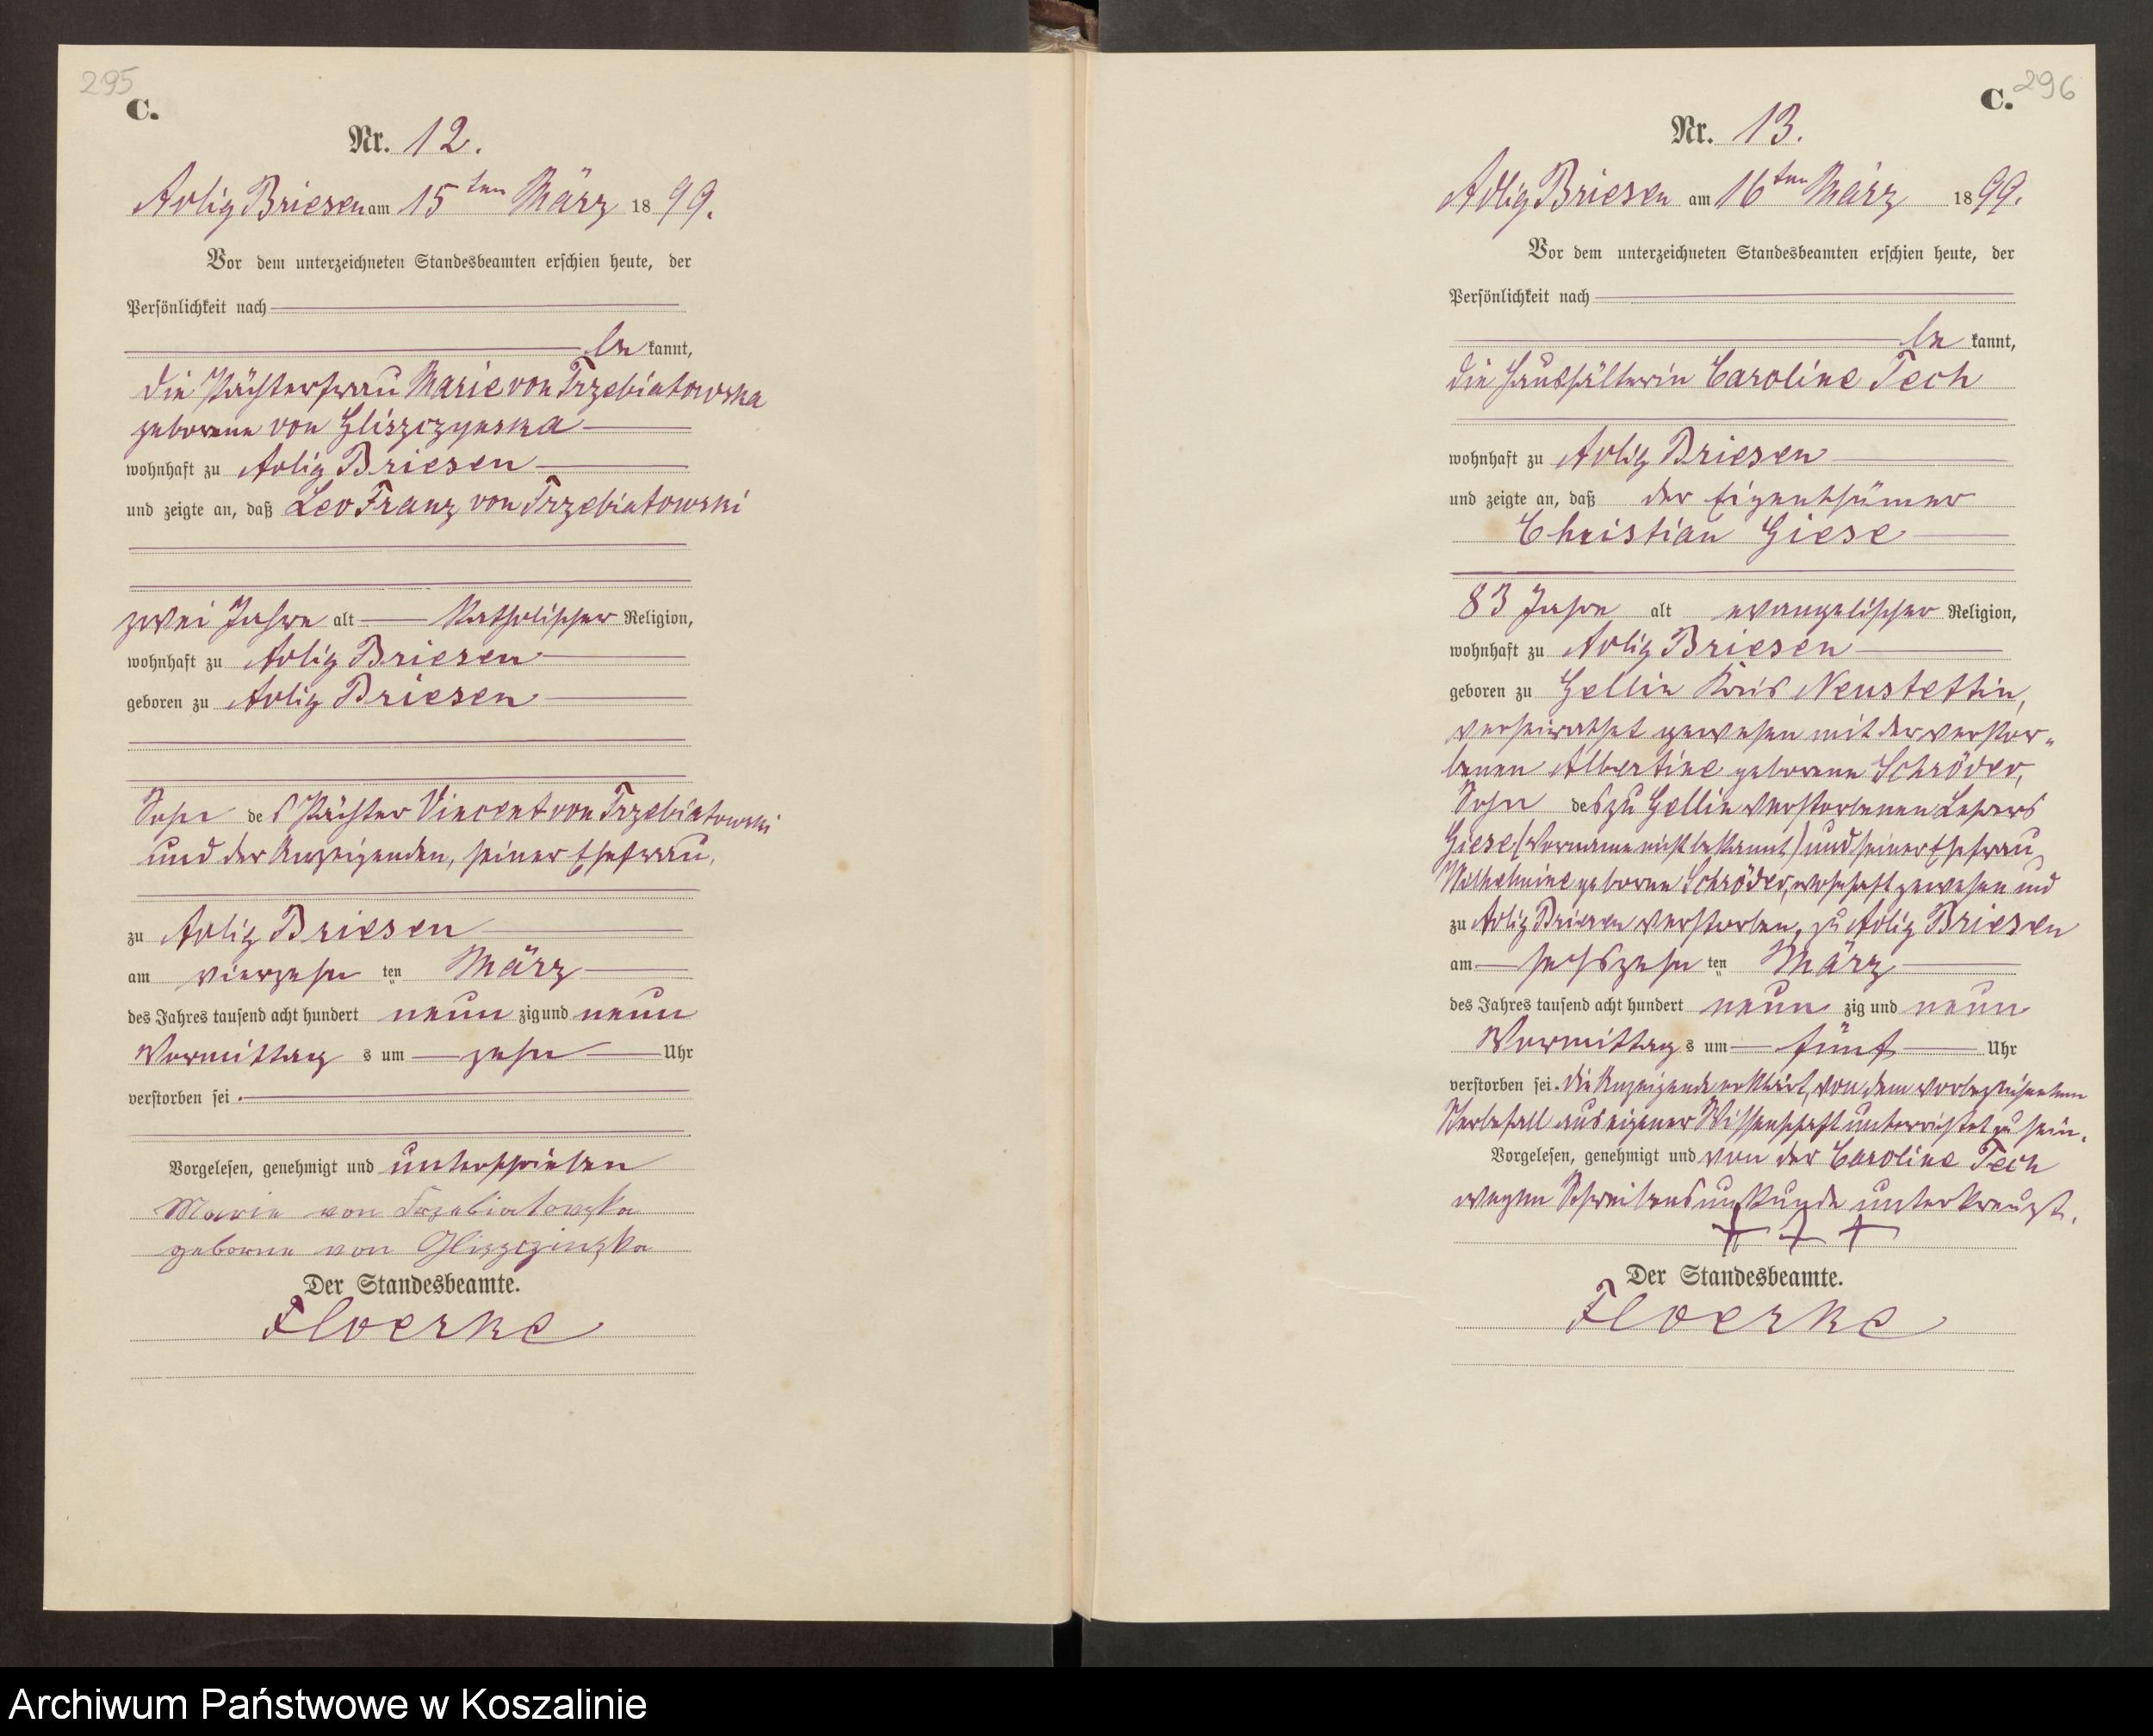 295
C.
Nr. 12.
Adlig Briesen am 15ten März 1899.
Vor dem unterzeichneten Standesbeamten erschien heute, der
Persönlichkeit nach
be kannt,
die Pächterfrau Marie von Trzebiatowska
geborene von Gliszczynska
wohnhaft zu Adlig Briesen
und zeigte an, daß Leo Franz von Trzebiatowski
zwei Jahre alt Katholischer Religion,
wohnhaft zu Adlig Briesen
geboren zu Adlig Briesen
Sohn des Pächter Vincent von Trzebiatowski
und der Anzeigenden, seiner Ehefrau,
zu Adlig Briesen
am vierzehn ten März
des Jahres tausend acht hundert neun zig und neun
Vormittag s um zehn Uhr
verstorben sei.
Vorgelesen, genehmigt und unterschrieben
Marie von Trzebiatowska
geborne von Gliszczinska
Der Standesbeamte.
Floerke
296
C.
Nr. 13.
Adlig Briesen am 16ten März 1899.
Vor dem unterzeichneten Standesbeamten erschien heute, der
Persönlichkeit nach
be kannt,
die Haushälterin Caroline Tech
wohnhaft zu Adlig Briesen
und zeigte an, daß der Eigenthümer
Christian Giese
83 Jahre alt evangelischer Religion,
wohnhaft zu Adlig Briesen
geboren zu Gellin Kreis Neustettin,
verheirathet gewesen mit der verstor-
benen Albertine geborene Schröder,
Sohn des zu Gellin verstorbenen Lehrers
Giese, (Vorname nicht bekannt) und seiner Ehefrau
Wilhelmine geborne Schröder, wohnhaft gewesen und
zu Adlig Briesen verstorben, zu Adlig Briesen
am sechszehn ten März
des Jahres tausend acht hundert neun zig und neun
Vormittag s um fünf Uhr
verstorben sei. Die Anzeigende erklärt, von dem vorbezeichneten
Sterbefall aus eigener Wissenschaft unterrichtet zu sein.
Vorgelesen, genehmigt und von der Caroline Tech
wegen Schreibensunkunde unterkreuzt.
+ + +
Der Standesbeamte.
Floerke
Archiwum Państwowe w Koszalinie